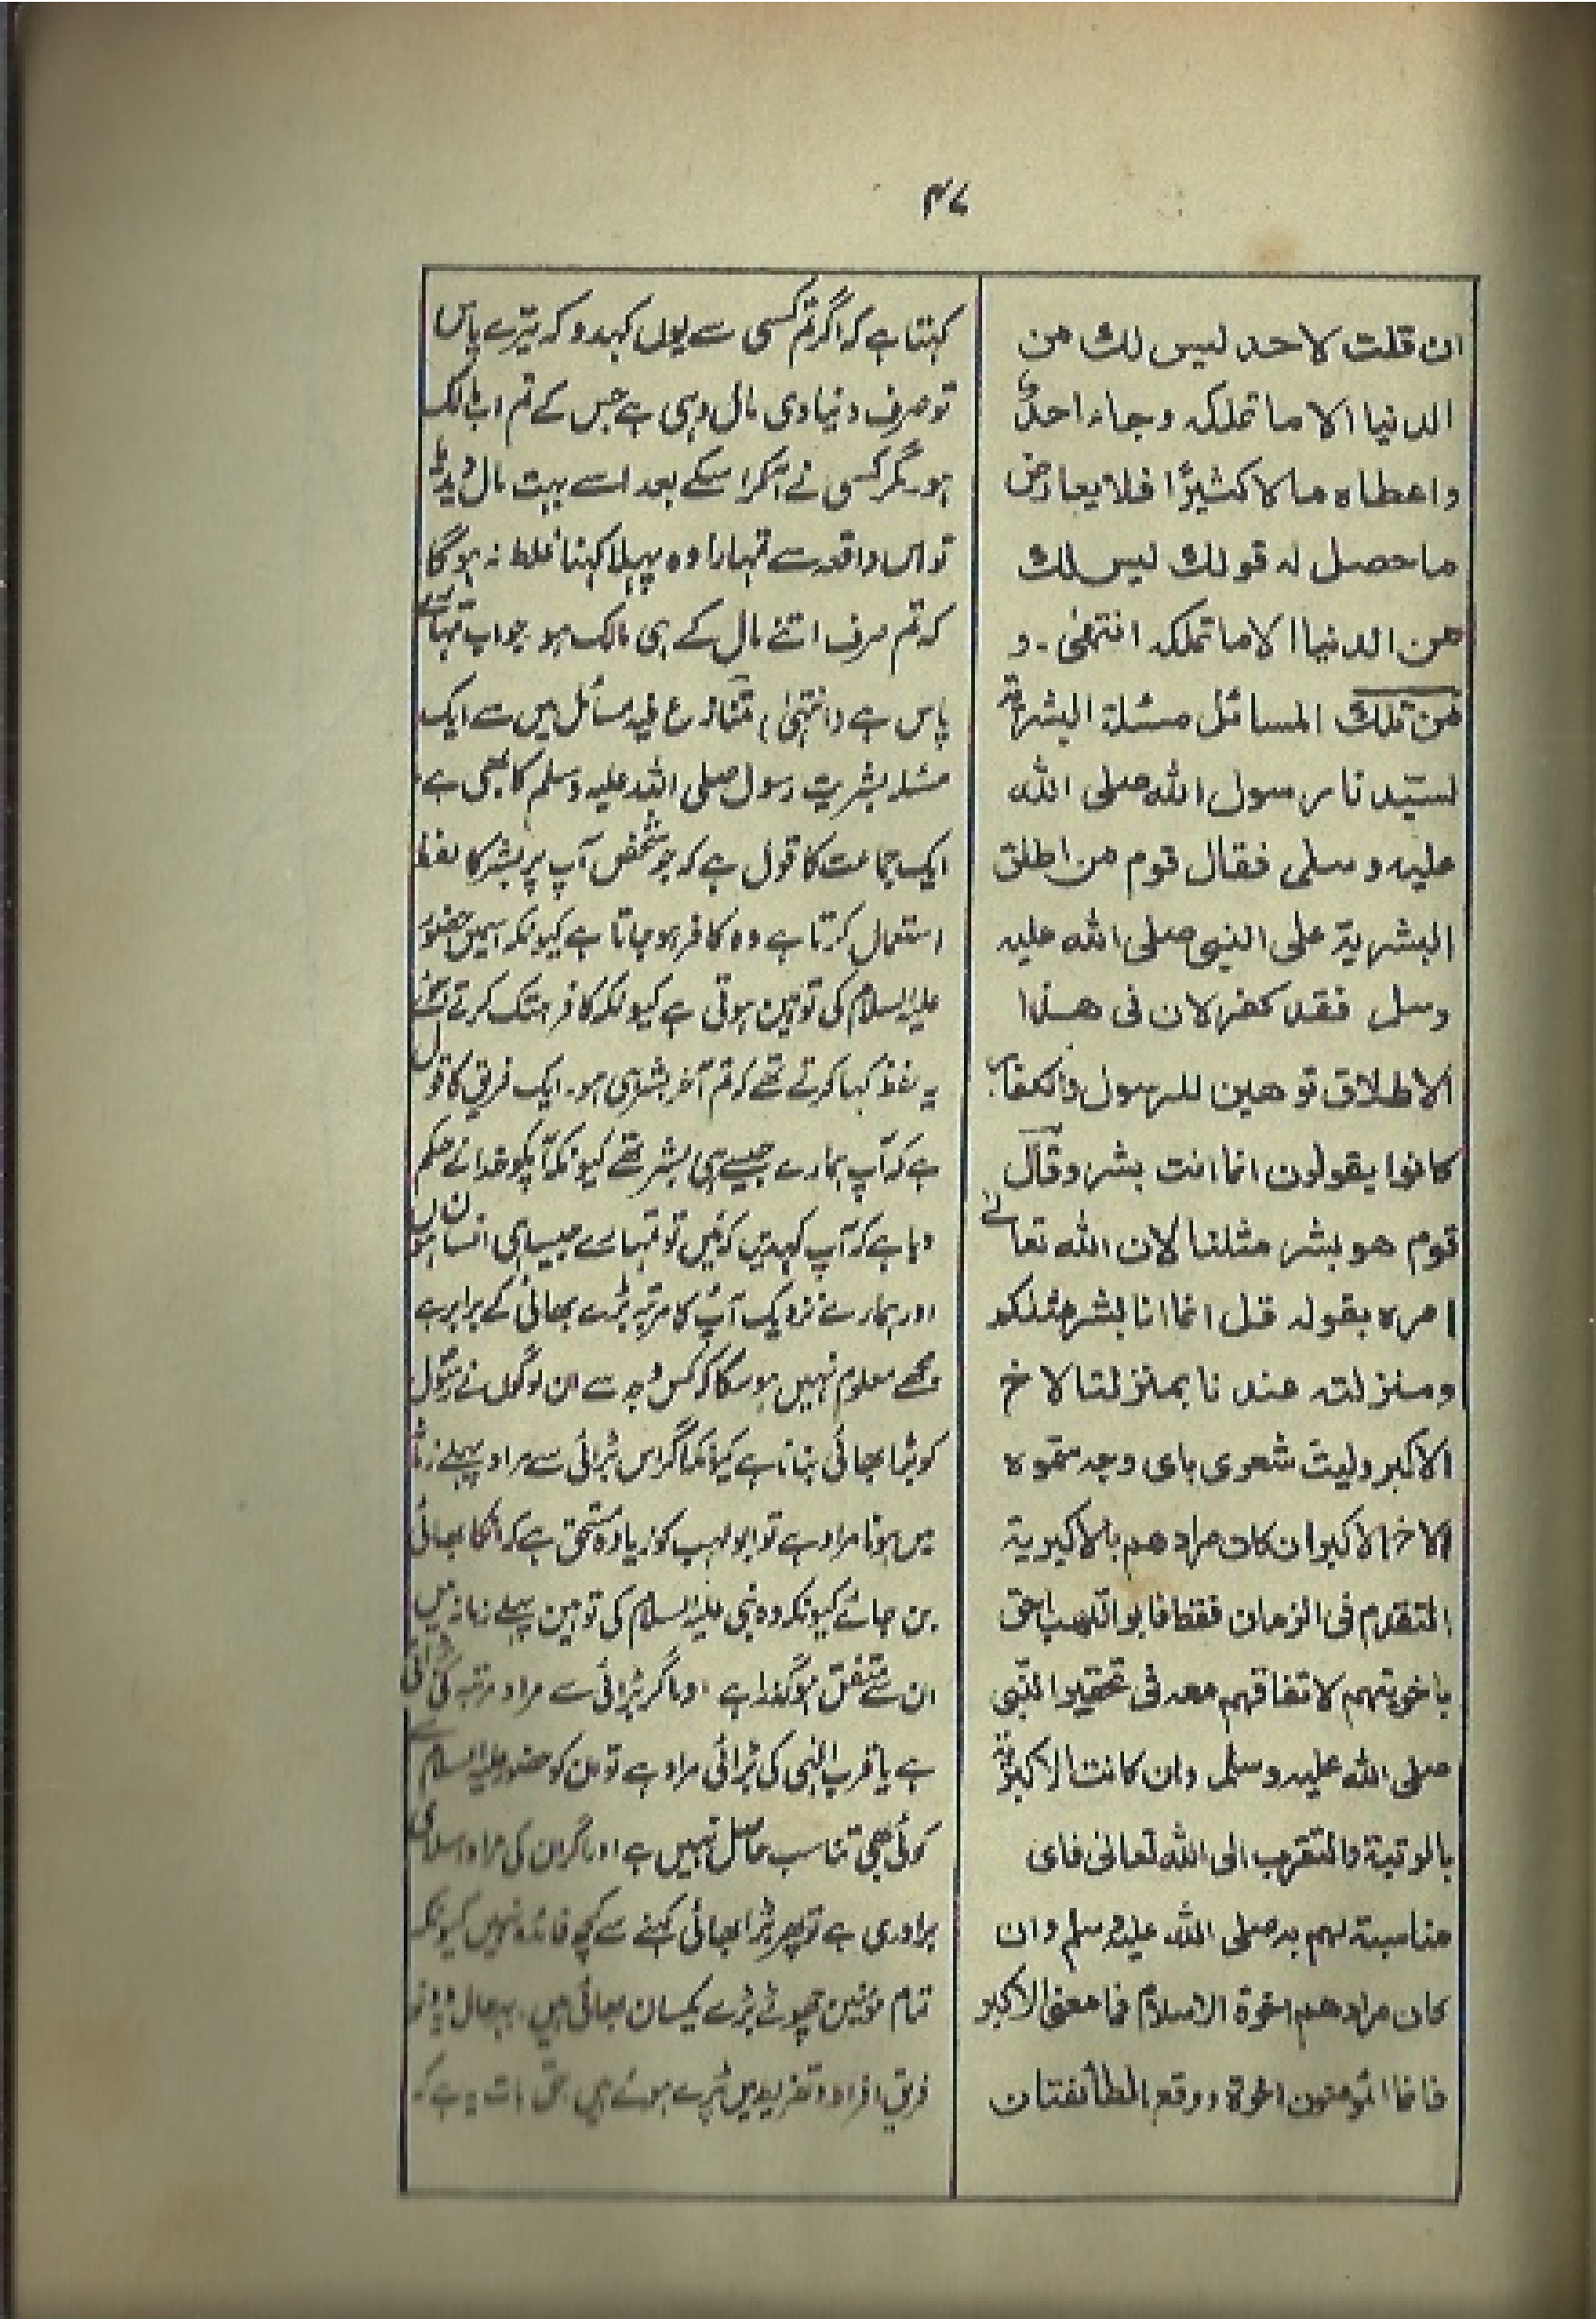 ۴۷
ان قلت لاحد ليس لك من
الدنيا الا ما تملكه وجاء احدٌ
واعطاه مالا كثيرًا فلا يعارض
ما حصل له قولك ليس لك
من الدنيا الا ما تملكه انتهىٰ - و
من تلك المسائل مسئلة البشرية
لسيّدنا رسول الله صلى الله
عليه وسلم فقال قوم من اطلق
البشرية على النبي صلى الله عليه
وسلم فقد كفر لان فى هذا
الاطلاق توهين للرسول والكفار
كانوا يقولون انما انت بشر وقال
قوم هو بشر مثلنا لان الله تعالے
امره بقوله قل انما انا بشر مثلكم
ومنزلته عندنا بمنزلتا لاخ
الاكبر وليت شعرى باى وجه سموه
الاخ الاكبر ان كان مرادهم بالاكبرية
المتقدم فى الزمان فقط فابو اللهب احق
باخويتهم لاتفاقهم معه فى تحقير النّبى
صلى الله عليه وسلم وان كانت الاكبرية
بالمرتبة والتقرب الى الله تعالى فاى
مناسبة لهم به صلى الله عليه وسلم وان
كان مرادهم اخوة الاسلام فما معنى الاكبر
فانما المؤمنون اخوة ووقع الطائفتان
کہتا ہے کہ اگر تم کسی سے یوں کہدو کہ تیرے پاس
تو صرف دنیاوی مال وہی ہے جس کے تم اب مالک
ہو۔ مگر کسی نے آکر اسکے بعد اسے بہت مال دیدیا
تو اس واقعہ سے تمہارا وہ پہلا کہنا غلط نہ ہوگا
کہ تم صرف اتنے مال کے ہی مالک ہو جو اب تمہارے
پاس ہے (انتہیٰ) متنازع فیہ مسائل میں سے ایک
مسئلہ بشریت رسول صلی اللہ علیہ وسلم کا بھی ہے۔
ایک جماعت کا قول ہے کہ جو شخص آپ پر بشر کا لفظ
استعمال کرتا ہے وہ کافر ہو جاتا ہے کیونکہ اسمیں حضور
علیہ السلام کی توہین ہوتی ہے کیونکہ کافر ہتک کرتے ہوئے
یہ لفظ کہا کرتے تھے کہ تم آخر بشر ہی ہو۔ ایک فریق کا قول
ہے کہ آپ ہمارے جیسے ہی بشر تھے کیونکہ آپکو خدا نے حکم
دیا ہے کہ آپ کہدیں کہ میں تو تمہارے جیسا ہی انسان ہوں
اور ہمارے نزدیک آپ کا مرتبہ بڑے بھائی کے برابر ہے
مجھے معلوم نہیں ہو سکا کہ کس وجہ سے ان لوگوں نے رسول
کو بڑا بھائی بنانا ہے کیونکہ اگر اس بڑائی سے مراد پہلے زمانہ
میں ہونا مراد ہے تو ابو لہب کو زیادہ مستحق ہے کہ انکا بھائی
بن جائے کیونکہ وہ نبی علیہ السلام کی توہین پہلے زمانہ میں
ان سے متفق ہو گذرا ہے اور اگر بڑائی سے مراد مرتبہ کی بڑائی
ہے یا قرب الٰہی کی بڑائی مراد ہے تو ان کو حضور علیہ السلام سے
کوئی بھی تناسب حاصل نہیں ہے اور اگر ان کی مراد اسلامی
برادری ہے تو پھر بڑا بھائی کہنے سے کچھ فائدہ نہیں کیونکہ
تمام مؤمنین چھوٹے بڑے یکساں بھائی ہیں۔ بہر حال دونو
فریق افراط و تفریط میں پڑے ہوئے ہیں حق بات یہ ہے کہ